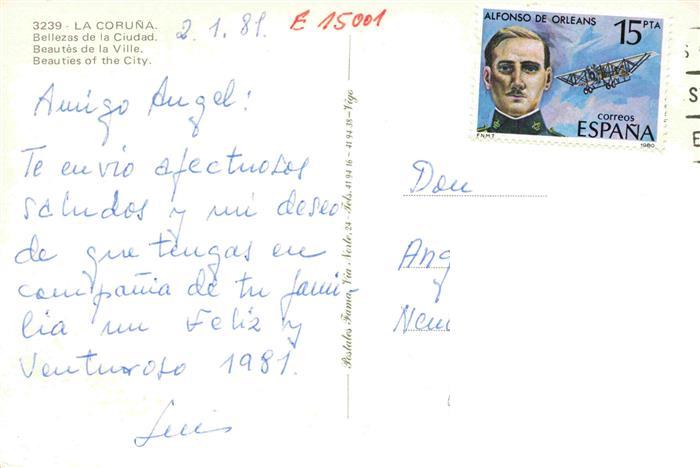 3239 - LA CORUÑA.
Bellezas de la Ciudad.
Beautés de la Ville.
Beauties of the City.
2.1.81.
E 15001
ALFONSO DE ORLEANS
15 PTA
correos
ESPAÑA
F.N.M.T.
1980
Amigo Angel:
Te envio afectuosos
saludos y mi deseo
de que tengas en
compañia de tu fami-
lia un Feliz y
Venturoso 1981.
Luis
Postales Fama, Vía Norte, 24 - Tels. 41 94 16 - 41 94 38 - Vigo
Don
Ang
y
S
E